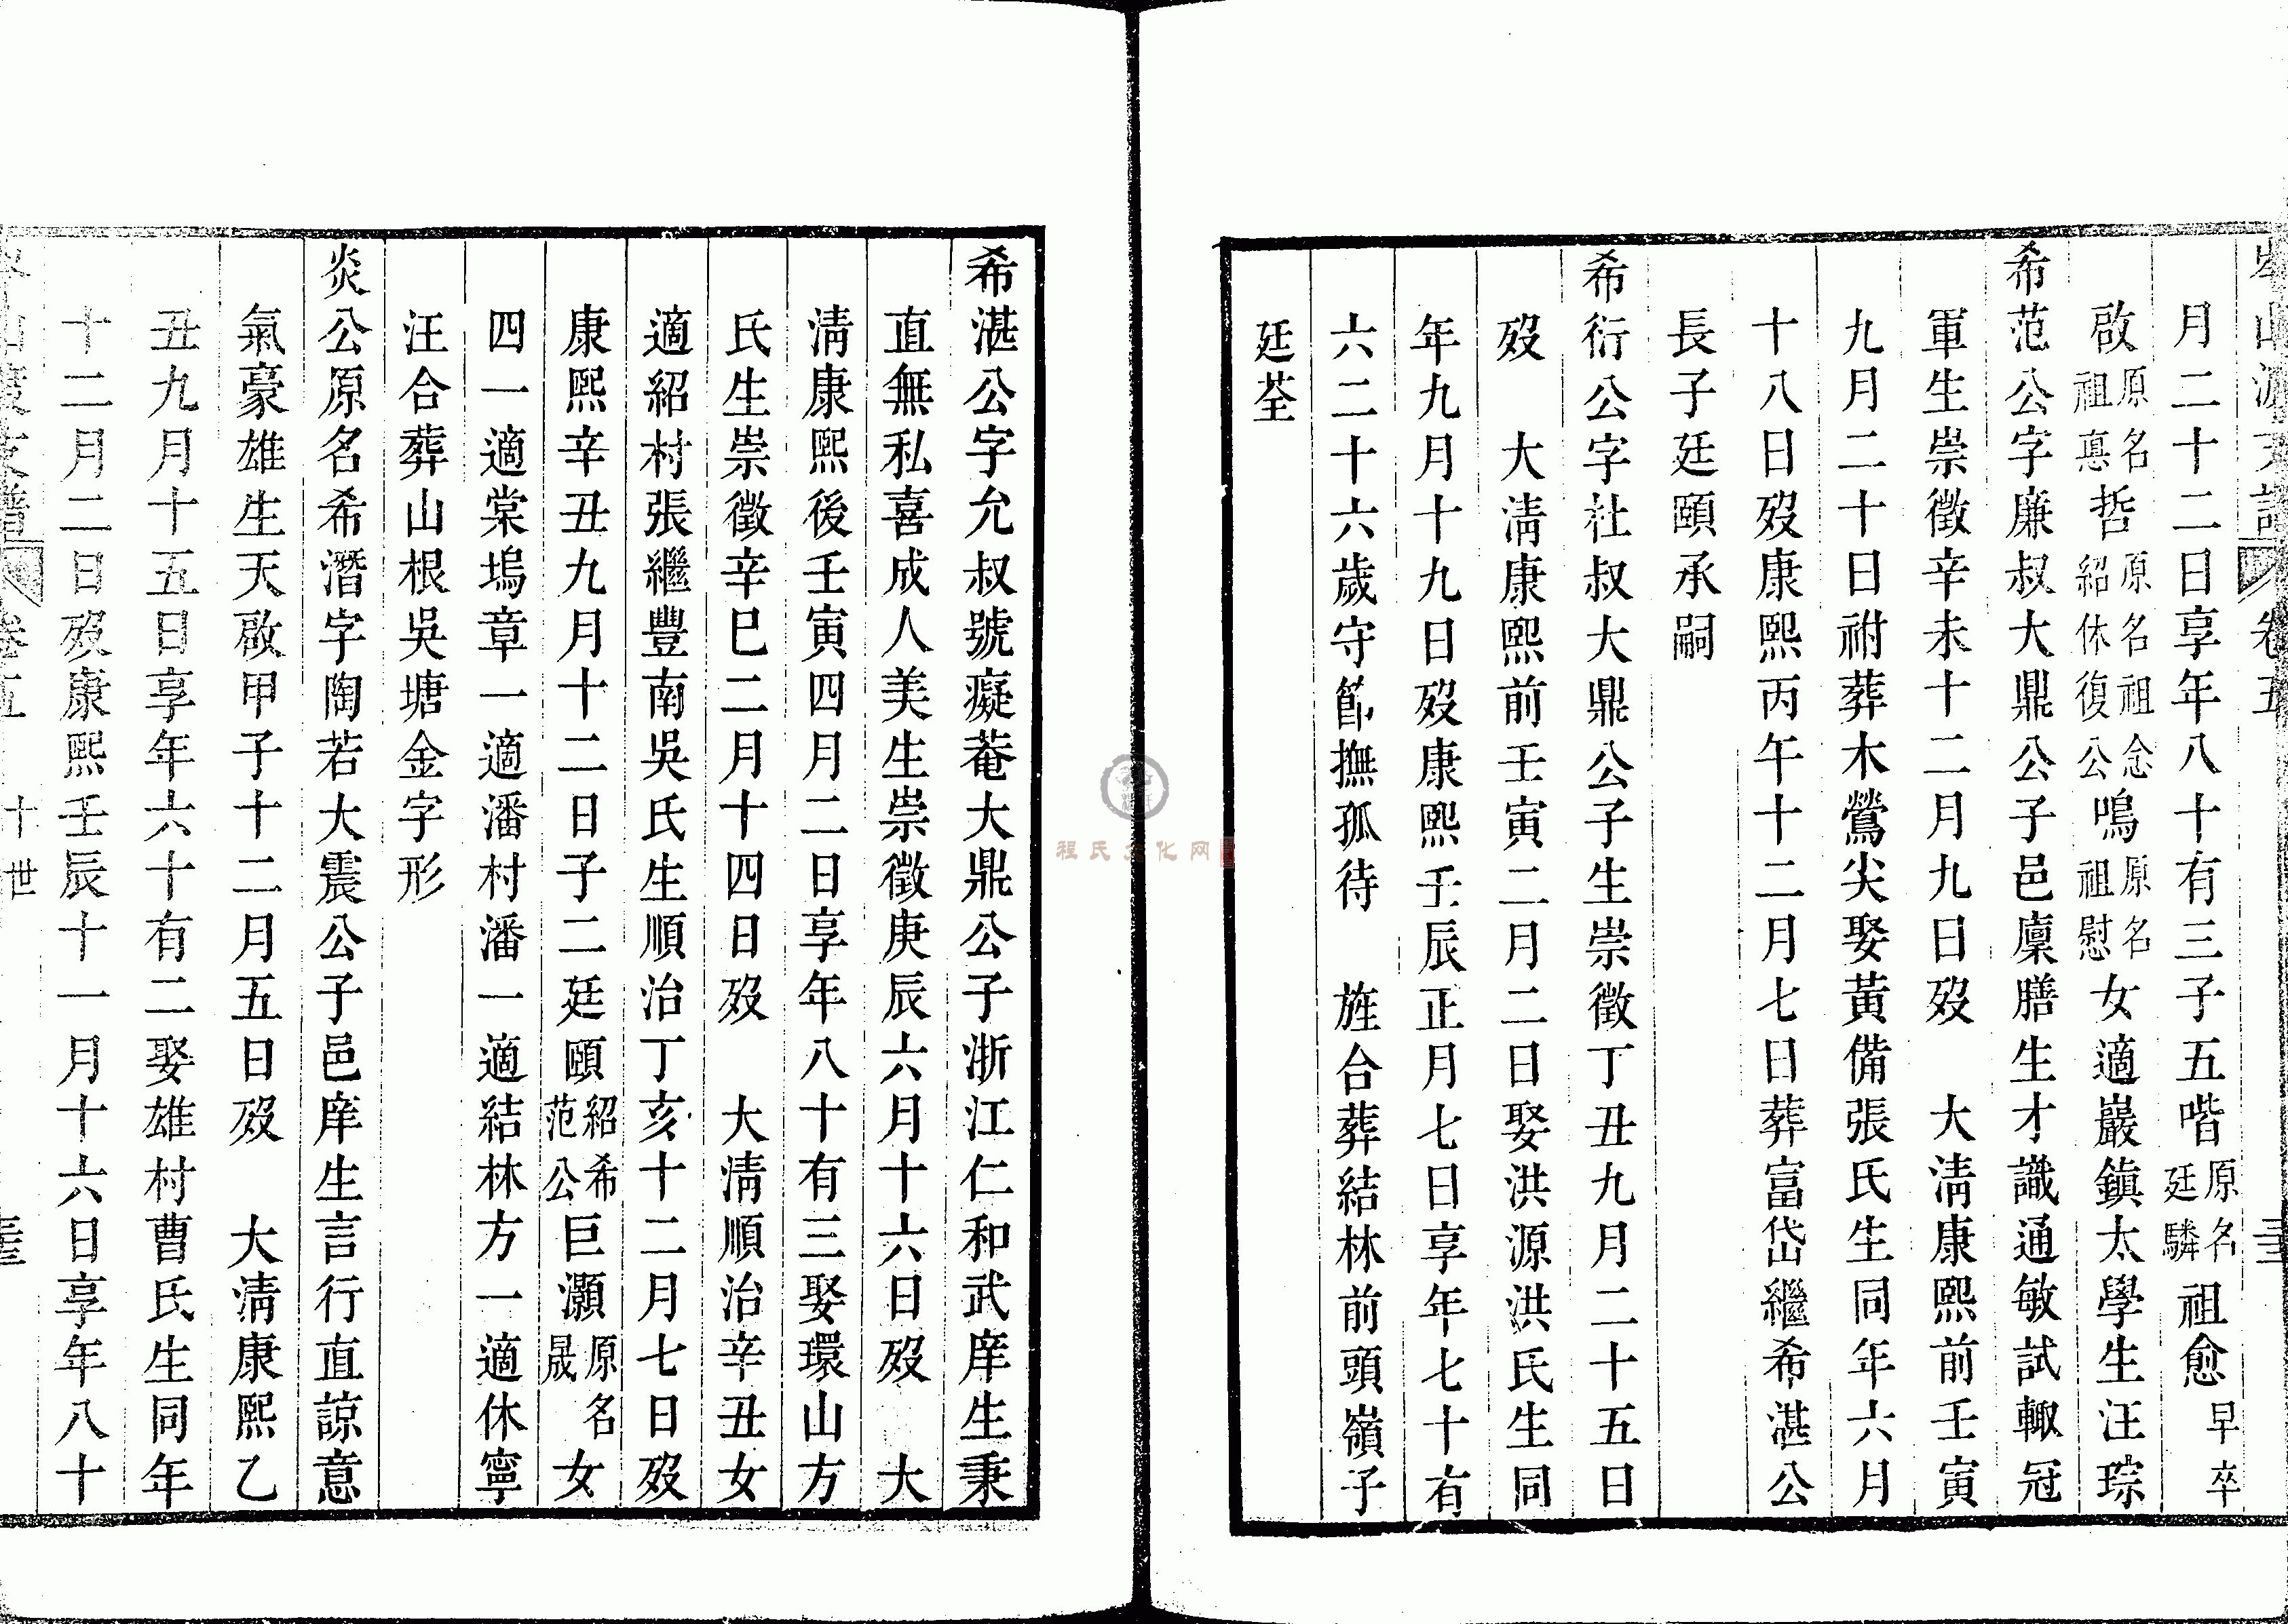 岑山渡支譜 卷五
月二十二日享年八十有三子五喈原名廷驎祖愈早卒
啟原名祖惪哲原名祖念紹休復公嗚原名祖慰女適巖鎮太學生汪琮
希范公字廉叔大鼎公子邑廩膳生才識通敏試輙冠
軍生崇徵辛未十二月九日歿 大淸康熙前壬寅
九月二十日祔葬木鶯尖娶黃備張氏生同年六月
十八日歿康熙丙午十二月七日葬富岱繼希湛公
長子廷頤承嗣
希衍公字社叔大鼎公子生崇徵丁丑九月二十五日
歿 大淸康熙前壬寅二月二日娶洪源洪氏生同
年九月十九日歿康熙壬辰正月七日享年七十有
六二十六歲守節撫孤待 旌合葬結林前頭嶺子
廷荃
希湛公字允叔號癡菴大鼎公子浙江仁和武庠生秉
直無私喜成人美生崇徵庚辰六月十六日歿 大
淸康熙後壬寅四月二日享年八十有三娶環山方
氏生崇徵辛巳二月十四日歿 大淸順治辛丑女
適紹村張繼豐南吳氏生順治丁亥十二月七日歿
康熙辛丑九月十二日子二廷頤紹希范公巨灝原名晟女
四一適棠塢章一適潘村潘一適結林方一適休寧
汪合葬山根吳塘金字形
炎公原名希潛字陶若大震公子邑庠生言行直諒意
氣豪雄生天啟甲子十二月五日歿 大淸康熙乙
丑九月十五日享年六十有二娶雄村曹氏生同年
十二月二日歿康熙壬辰十一月十六日享年八十
山渡支譜 卷五 十世
程氏文化网